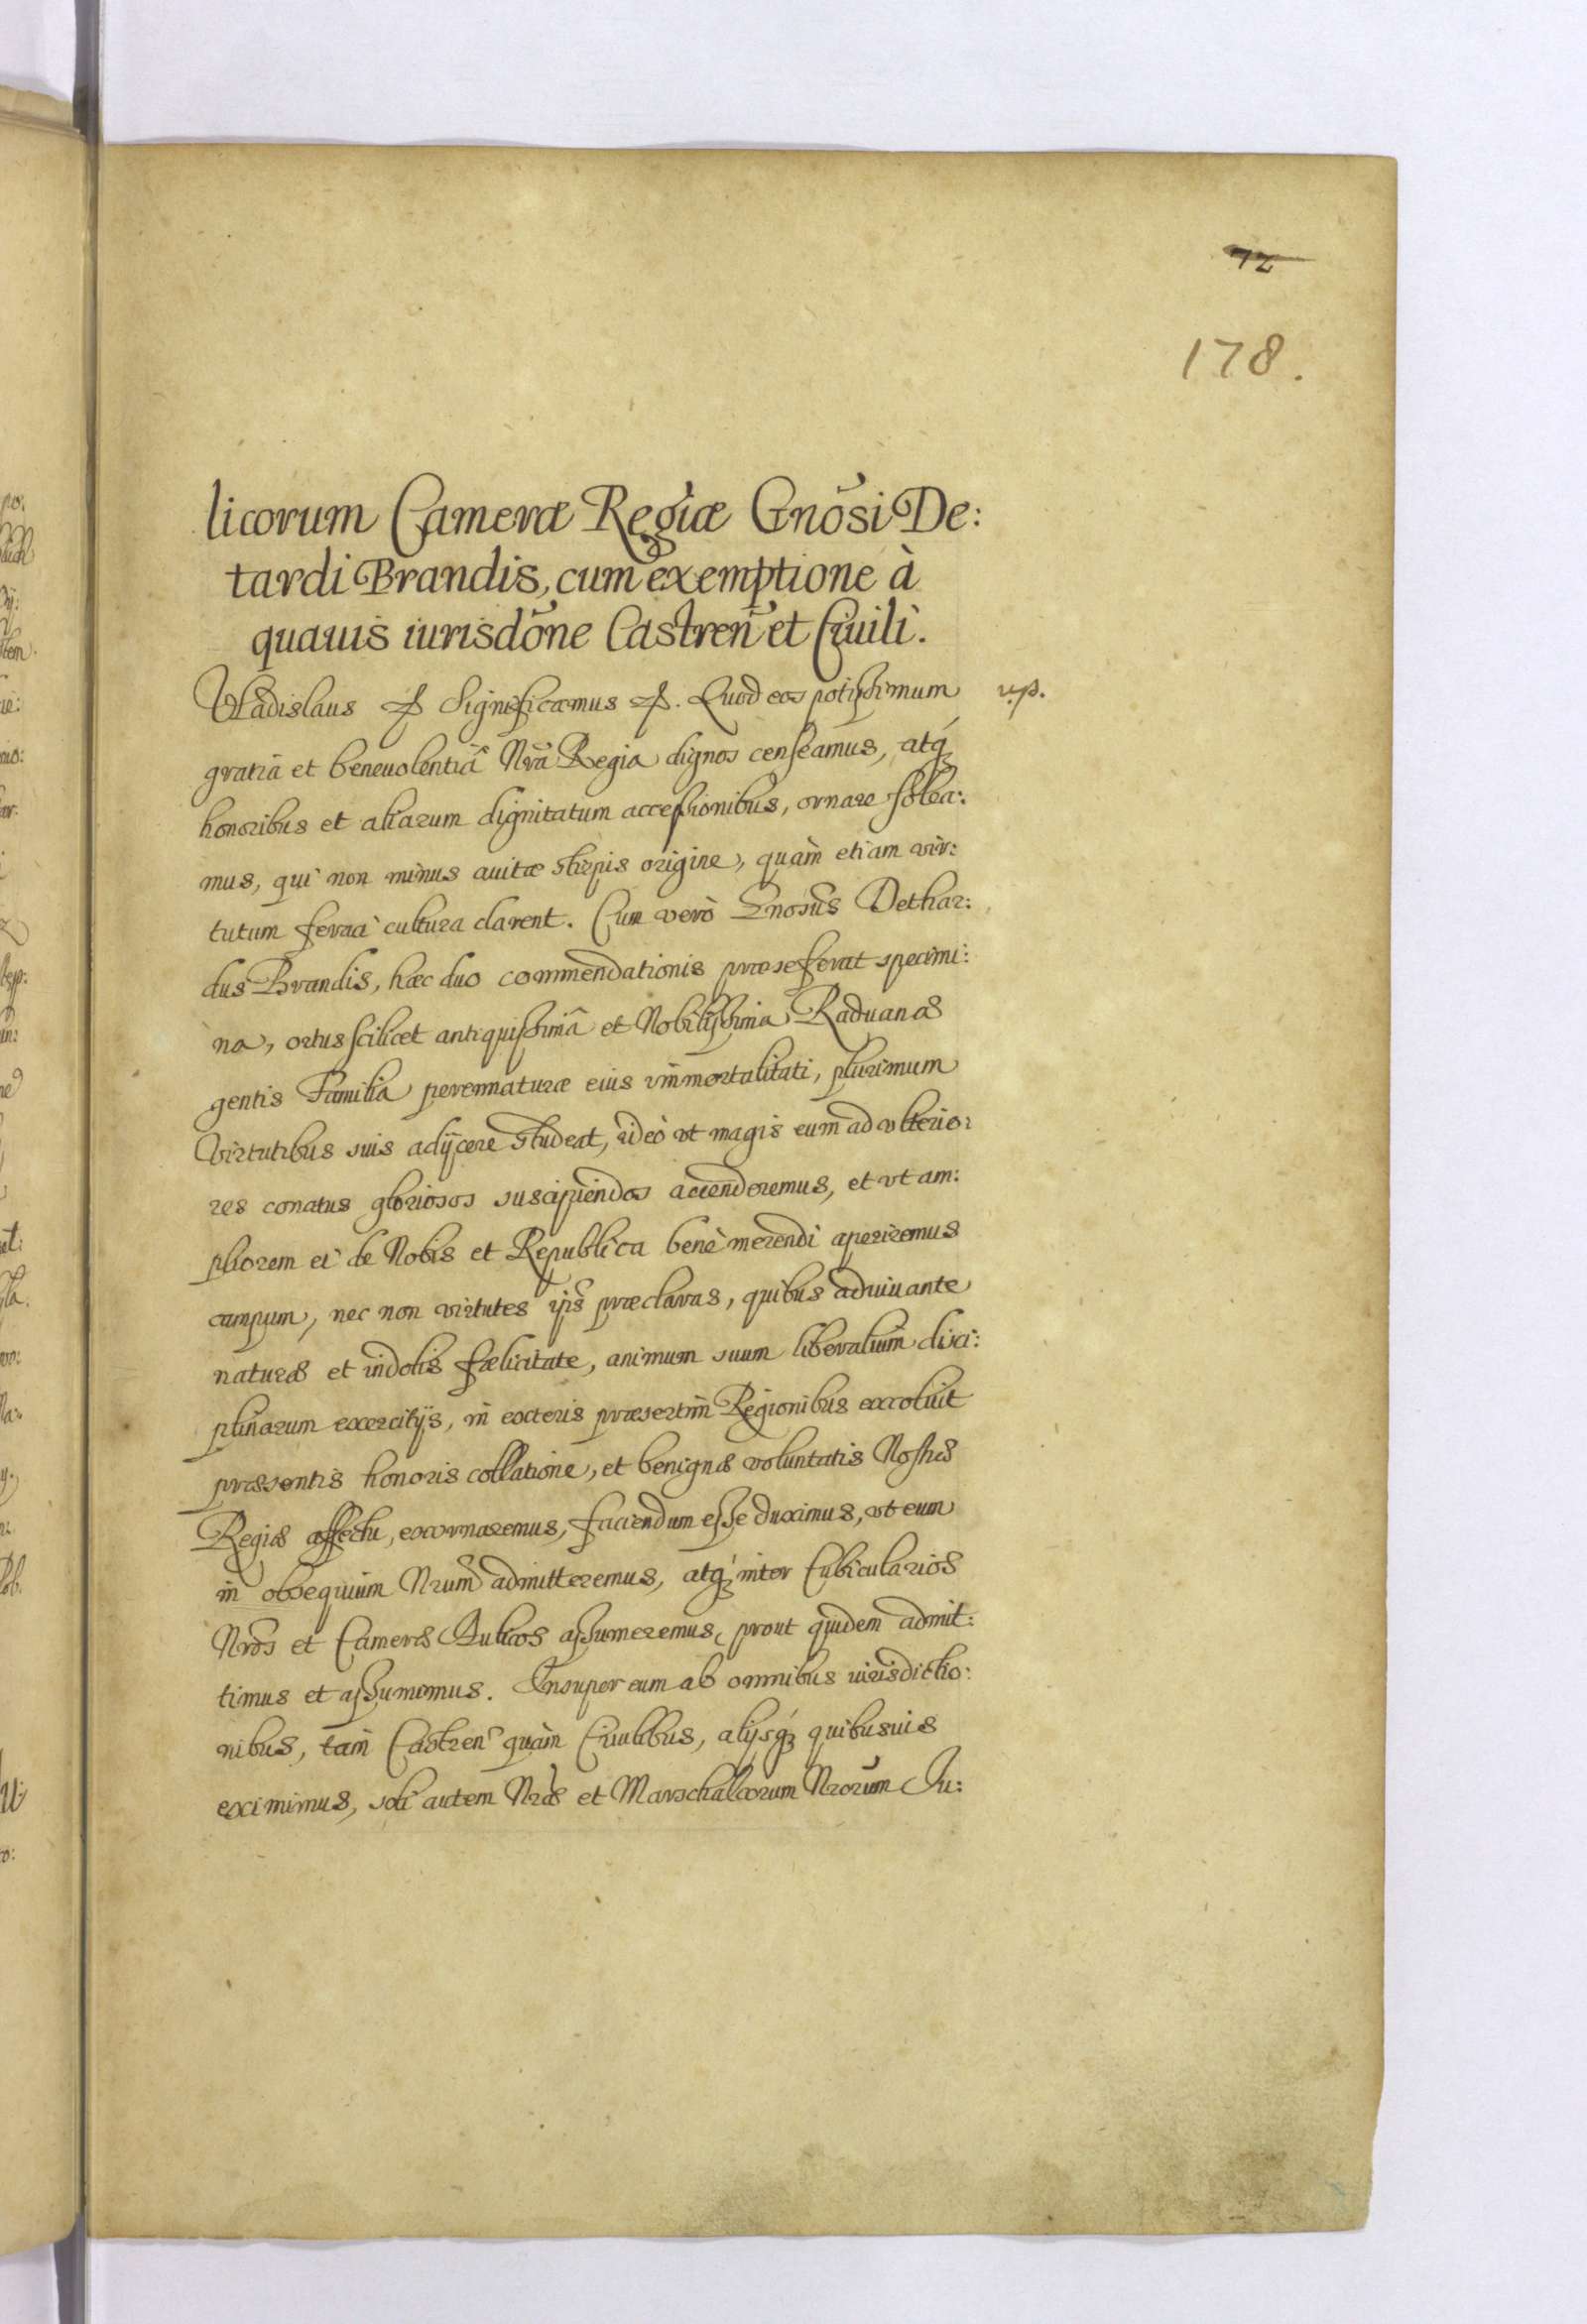 72
178.
licorum Cameræ Regiæ Gnõsi De:
tardi Brandis, cum exemptione à
quauis iurisdõne Castreñ et Ciuili.
Vladislaus Significamus Quod eos potissimum
gratiâ et beneuolentiâ Nrã Regia dignos censeamus, atq́
honoribus et aliarum dignitatum accessionibus, ornare solea:
mus, qui non minus auitæ stirpis origine, quàm etiam vir:
tutum feraci cultura clarent. Cum verò Gnosus Dethar:
dus Brandis, hæc duo commendationis præseferat specimi:
na, ortus scilicet antiquissimâ et Nobilissima Raduanæ
gentis Familia perennaturæ eius immortalitati, plurimum
Virtutibus suis adÿcere studeat, ideò vt magis eum ad vlterio:
res conatus gloriosos suscipiendos accenderemus, et vt am:
pliorem ei de Nobis et Republica benè merendi aperiremus
campum, nec non virtutes ips̃ præclaras, quibus adiuuante
naturæ et indolis fœlicitate, animum suum liberalium disci:
plinarum exercitÿs, in exteris præsertim Regionibus excoluit
præsentis honoris collatione, et benignæ voluntatis Nostræ
Regiæ affectu, exornaremus, faciendum esse duximus, vt eum
in obsequium Nrum̃ admitteremus, atq́ inter Cubicularios
Nrõs et Cameræ Aulicos assumeremus, prout quidem admit:
timus et assumimus. Insuper eum ab omnibus iurisdictio:
nibus, tam Castreñ quàm Ciuilibus, alÿsq́ quibusuis
eximimus, soli autem Nræ̃ et Marschalcorum Nrorũm Au:
u.p.